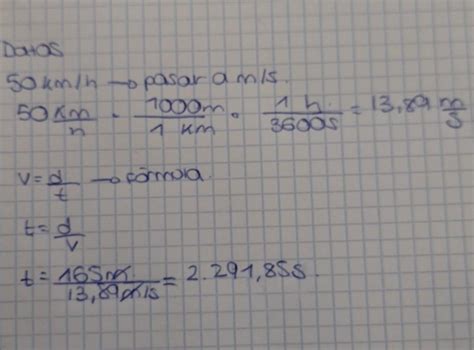 Datos
50 km/h → pasar a m/s.
50 km/h · 1000m/1 km · 1 h/3600s = 13,89 m/s
v = d/t → fórmula.
t = d/v
t = 165m/13,89m/s = 2.291,85s.